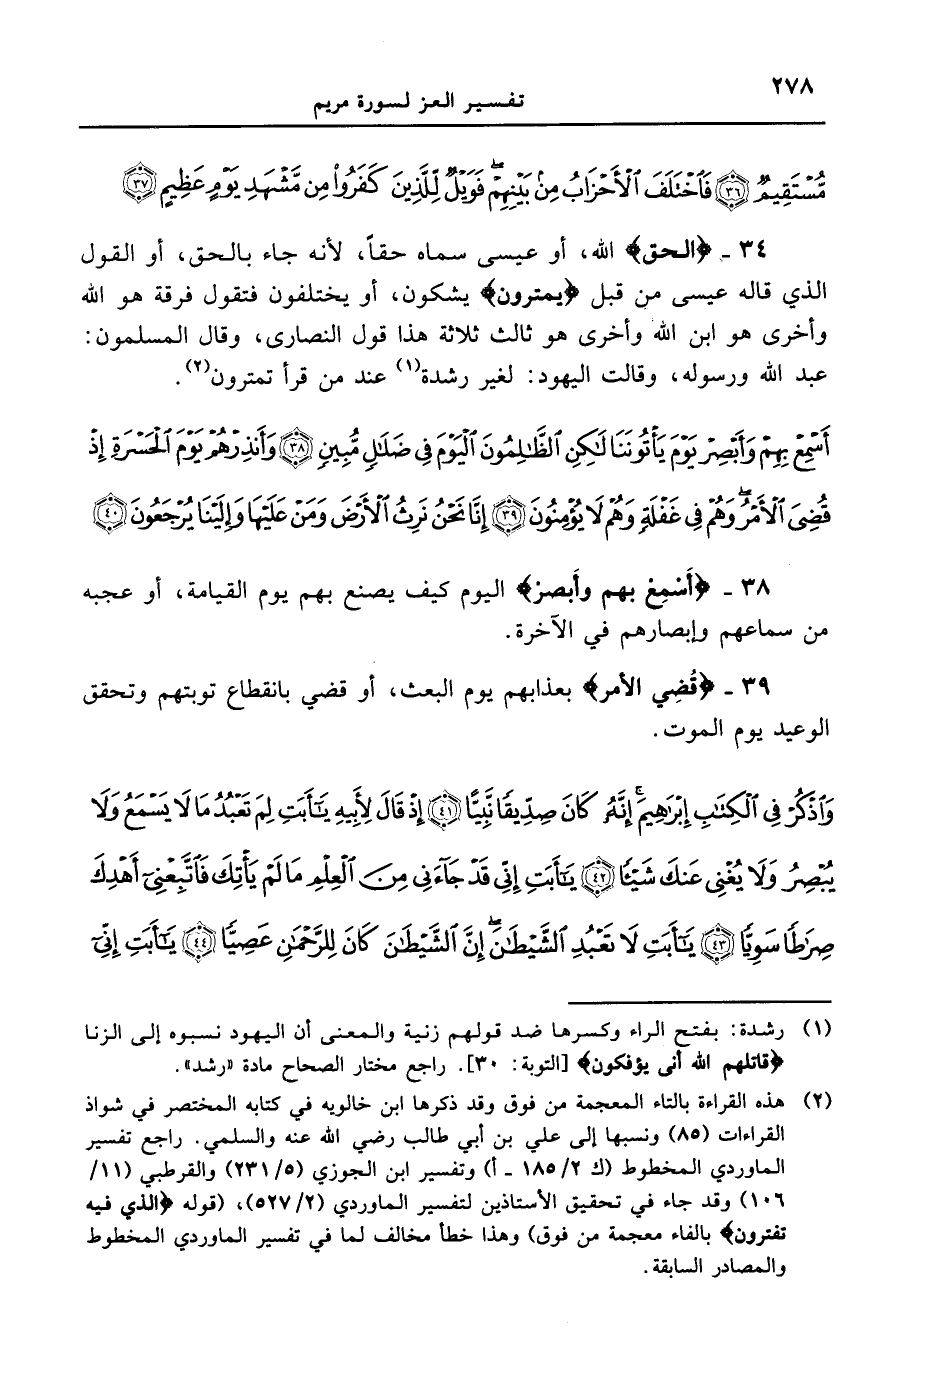 ٢٧٨
تفسير العز لسورة مريم
مُّسْتَقِيمٌ ﴿٣٦﴾ فَٱخْتَلَفَ ٱلْأَحْزَابُ مِنۢ بَيْنِهِمْ ۖ فَوَيْلٌ لِّلَّذِينَ كَفَرُوا۟ مِن مَّشْهَدِ يَوْمٍ عَظِيمٍ ﴿٣٧﴾
٣٤ - ﴿الحق﴾ الله، أو عيسى سماه حقاً، لأنه جاء بالحق، أو القول
الذي قاله عيسى من قبل ﴿يمترون﴾ يشكون، أو يختلفون فتقول فرقة هو الله
وأخرى هو ابن الله وأخرى هو ثالث ثلاثة هذا قول النصارى، وقال المسلمون:
عبد الله ورسوله، وقالت اليهود: لغير رشدة(١) عند من قرأ تمترون(٢).
أَسْمِعْ بِهِمْ وَأَبْصِرْ يَوْمَ يَأْتُونَنَا لَٰكِنِ ٱلظَّٰلِمُونَ ٱلْيَوْمَ فِى ضَلَٰلٍ مُّبِينٍ ﴿٣٨﴾ وَأَنذِرْهُمْ يَوْمَ ٱلْحَسْرَةِ إِذْ
قُضِىَ ٱلْأَمْرُ وَهُمْ فِى غَفْلَةٍ وَهُمْ لَا يُؤْمِنُونَ ﴿٣٩﴾ إِنَّا نَحْنُ نَرِثُ ٱلْأَرْضَ وَمَنْ عَلَيْهَا وَإِلَيْنَا يُرْجَعُونَ ﴿٤٠﴾
٣٨ - ﴿أَسْمِعْ بهم وأَبصرْ﴾ اليوم كيف يصنع بهم يوم القيامة، أو عجبه
من سماعهم وإبصارهم في الآخرة.
٣٩ - ﴿قُضِي الأمر﴾ بعذابهم يوم البعث، أو قضي بانقطاع توبتهم وتحقق
الوعيد يوم الموت.
وَٱذْكُرْ فِى ٱلْكِتَٰبِ إِبْرَٰهِيمَ ۚ إِنَّهُۥ كَانَ صِدِّيقًا نَّبِيًّا ﴿٤١﴾ إِذْ قَالَ لِأَبِيهِ يَٰٓأَبَتِ لِمَ تَعْبُدُ مَا لَا يَسْمَعُ وَلَا
يُبْصِرُ وَلَا يُغْنِى عَنكَ شَيْـًٔا ﴿٤٢﴾ يَٰٓأَبَتِ إِنِّى قَدْ جَآءَنِى مِنَ ٱلْعِلْمِ مَا لَمْ يَأْتِكَ فَٱتَّبِعْنِىٓ أَهْدِكَ
صِرَٰطًا سَوِيًّا ﴿٤٣﴾ يَٰٓأَبَتِ لَا تَعْبُدِ ٱلشَّيْطَٰنَ ۖ إِنَّ ٱلشَّيْطَٰنَ كَانَ لِلرَّحْمَٰنِ عَصِيًّا ﴿٤٤﴾ يَٰٓأَبَتِ إِنِّىٓ
(١) رشدة: بفتح الراء وكسرها ضد قولهم زنية والمعنى أن اليهود نسبوه إلى الزنا
﴿قاتلهم الله أنى يؤفكون﴾ [التوبة: ٣٠]. راجع مختار الصحاح مادة «رشد».
(٢) هذه القراءة بالتاء المعجمة من فوق وقد ذكرها ابن خالويه في كتابه المختصر في شواذ
القراءات (٨٥) ونسبها إلى علي بن أبي طالب رضي الله عنه والسلمي. راجع تفسير
الماوردي المخطوط (ك ٢/ ١٨٥ - أ) وتفسير ابن الجوزي (٥/ ٢٣١) والقرطبي (١١/
١٠٦) وقد جاء في تحقيق الأستاذين لتفسير الماوردي (٢/ ٥٢٧)، (قوله ﴿الذي فيه
تفترون﴾ بالفاء معجمة من فوق) وهذا خطأ مخالف لما في تفسير الماوردي المخطوط
والمصادر السابقة.